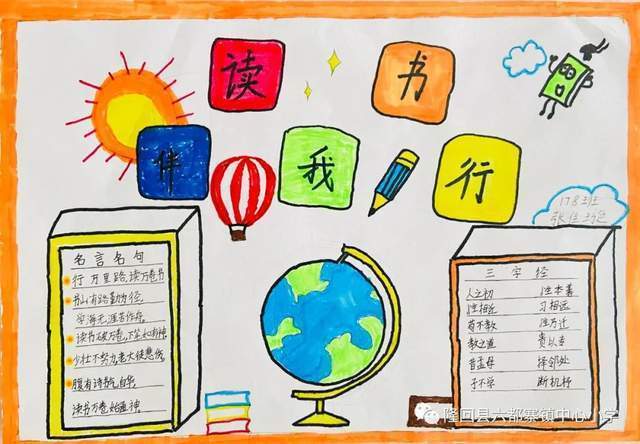 读书
伴我行
178班
名言名句
行万里路,读万卷书
书山有路勤为径
学海无涯苦作舟
读书破万卷,下笔如有神
少壮不努力,老大徒悲伤
腹有诗书气自华
三字经
人之初 性本善
性相近 习相远
苟不教 性乃迁
教之道 贵以专
昔孟母 择邻处
子不学 断机杼
隆回县六都寨镇中心小学